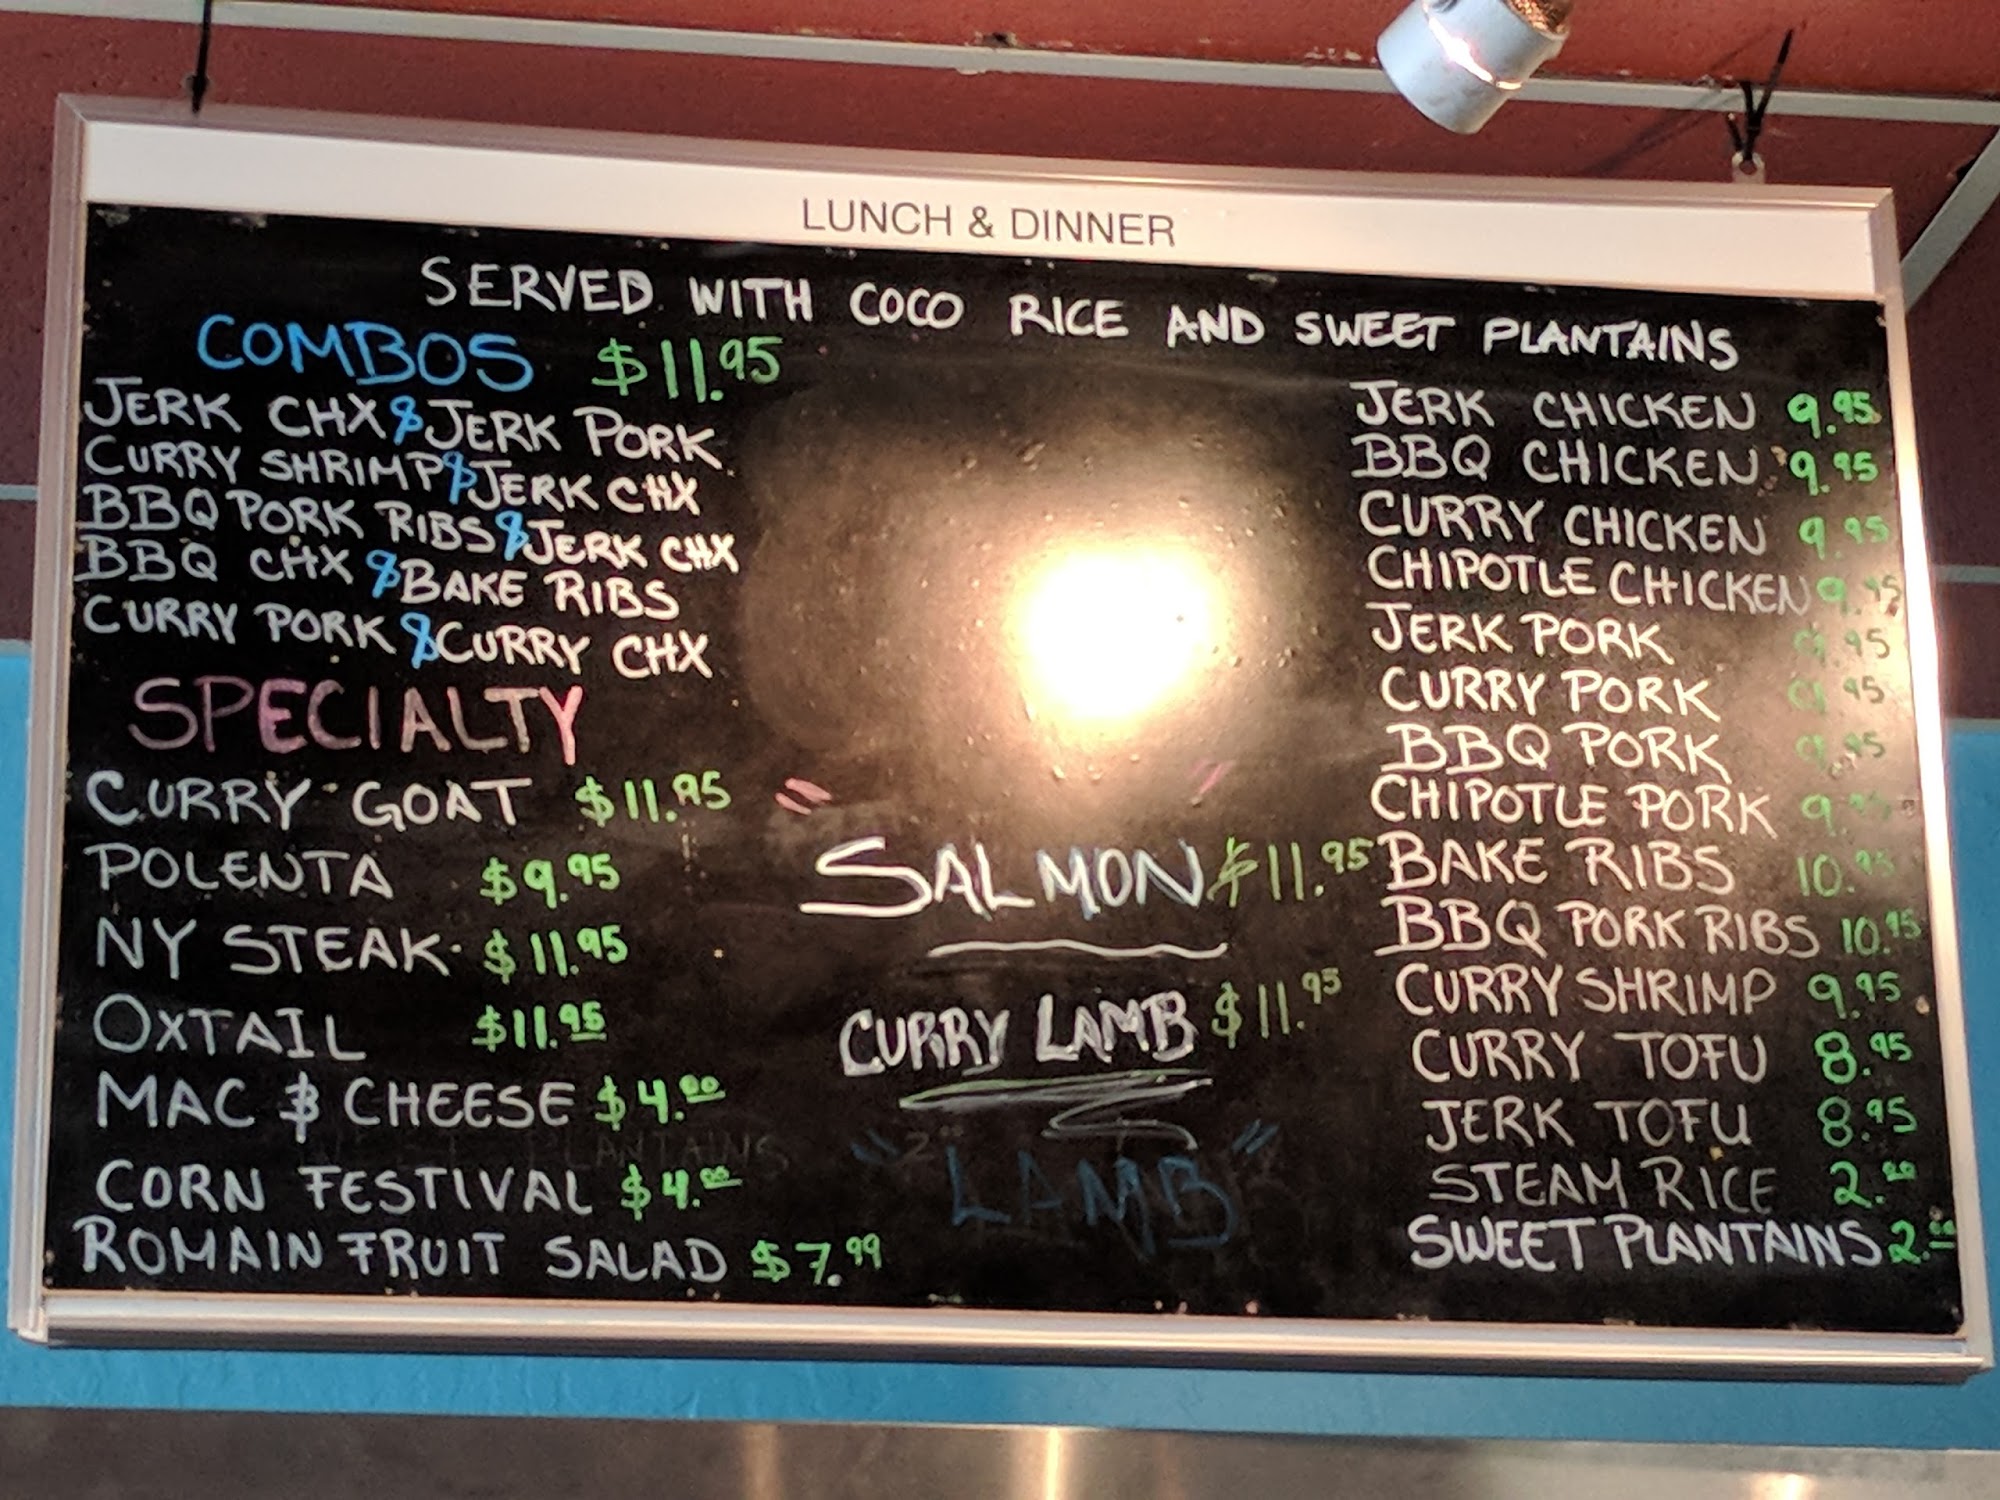 LUNCH & DINNER
SERVED WITH COCO RICE AND SWEET PLANTAINS
COMBOS $11.95
JERK CHX & JERK PORK
CURRY SHRIMP & JERK CHX
BBQ PORK RIBS & JERK CHX
BBQ CHX & BAKE RIBS
CURRY PORK & CURRY CHX
SPECIALTY
CURRY GOAT $11.95
POLENTA $9.95
NY STEAK $11.95
OXTAIL $11.95
MAC & CHEESE $4.00
CORN FESTIVAL $4.00
ROMAIN FRUIT SALAD $7.99
SALMON $11.95
CURRY LAMB $11.95
"LAMB"
PLANTAINS
JERK CHICKEN 9.95
BBQ CHICKEN 9.95
CURRY CHICKEN 9.95
CHIPOTLE CHICKEN 9.95
JERK PORK 9.95
CURRY PORK 9.95
BBQ PORK 9.95
CHIPOTLE PORK 9.95
BAKE RIBS 10.95
BBQ PORK RIBS 10.95
CURRY SHRIMP 9.95
CURRY TOFU 8.95
JERK TOFU 8.95
STEAM RICE 2.00
SWEET PLANTAINS 2.00